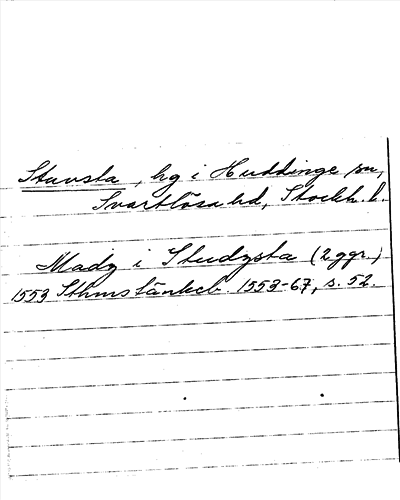 Stuvsta, hg i Huddinge sn,
Svartlösa hd, Stockh. l.
Madz i Studzsta (2 ggr.)
1553 Sthmstänkeb. 1553-67, s. 52.